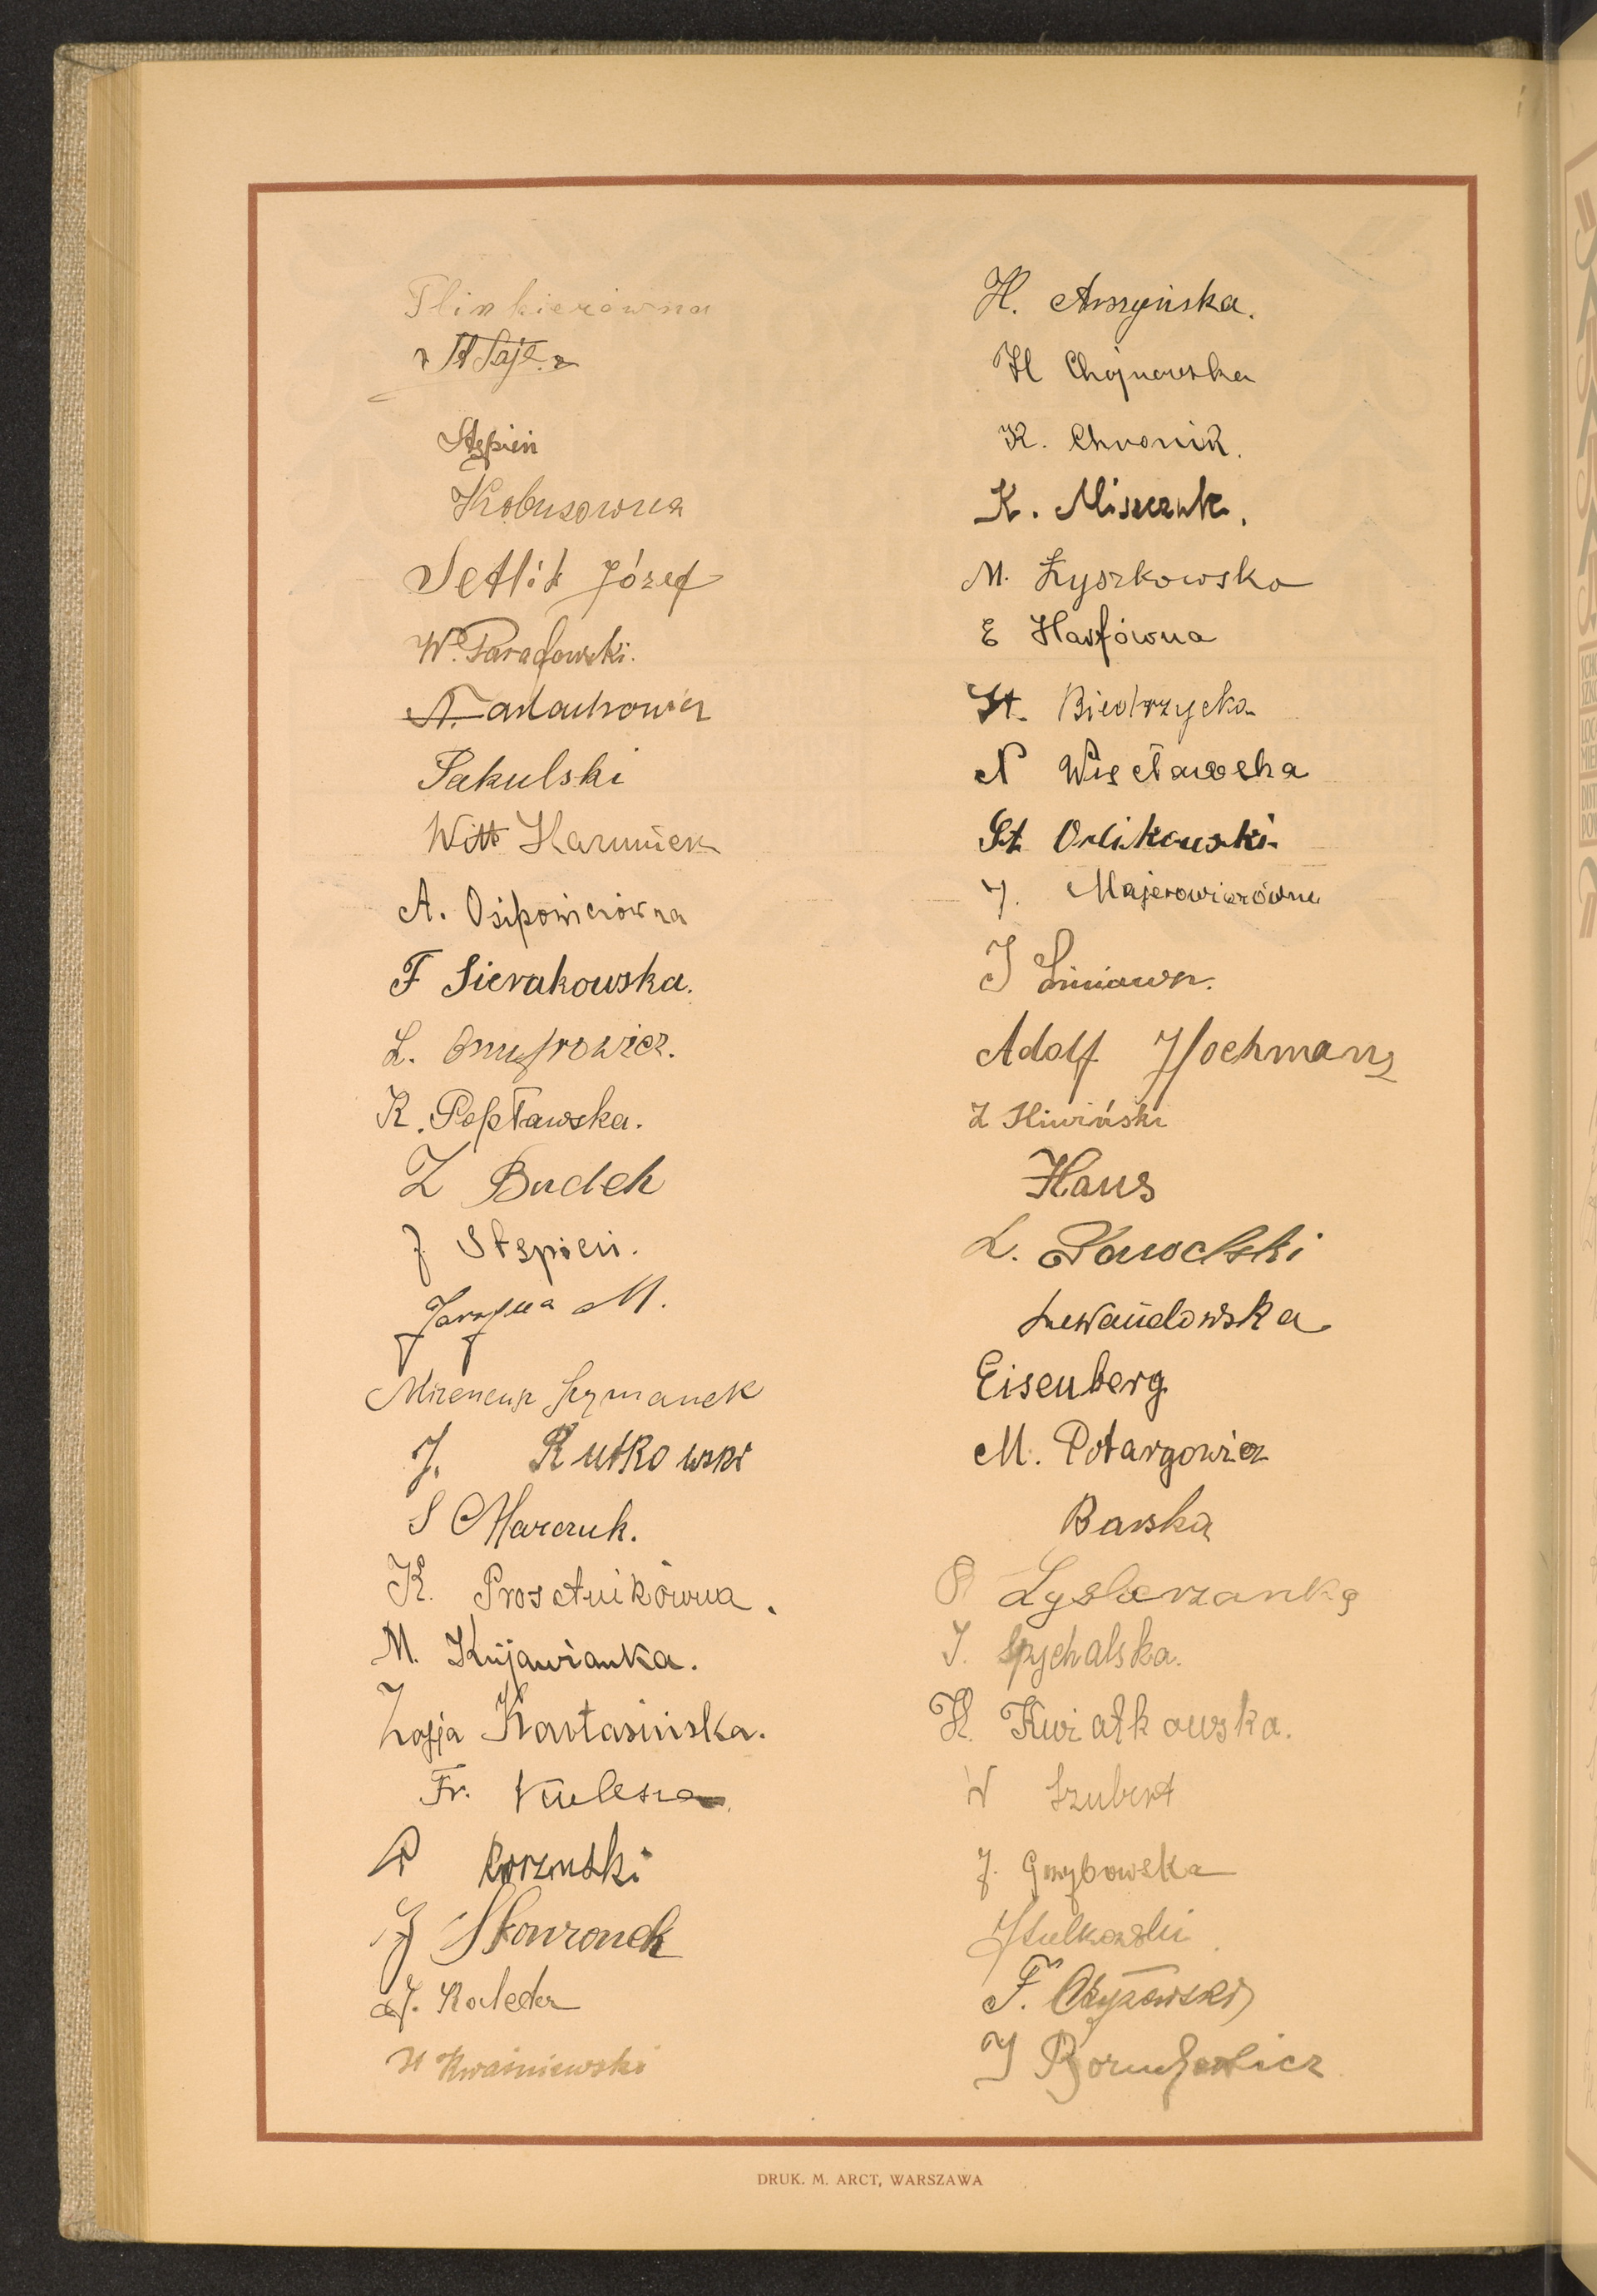 Flinkierówna
Stępień
Kobusówna
Setlik Józef
Wł. Parafowski.
Sakulski
Witt
A. Osipowiczówna
F Sierakowska.
L. Onufrowicz.
K. Popławska.
Z Budek
J Stępień.
M.
Szymanek
J. Rutkowski
S Marczuk.
K. Prosetnikówna.
M. Kujawianka.
Zofja Kartasińska.
Fr. Kulesza
J Skowronek
J. Kaleder
H Kwaśniewski
H. Anszyńska.
H Chojnowska
K. Chronik.
K. Miszczuk.
M. Łyszkowska
E Harfówna
St. Biedrzycka
N Więcławska
St Orlikowski
J. Majerowiczówna
J
Adolf Hochman
Z Hiwiński
Haus
L. Pawelski
Lewandowska
Eisenberg
M. Potargowicz
Barska
Łyskarzanka
J. Spychalska.
H. Kwiatkowska.
W Szubert
J. Grzybowska
Stulkowski
F. Chyżewski
J Boruchowicz
DRUK. M. ARCT, WARSZAWA